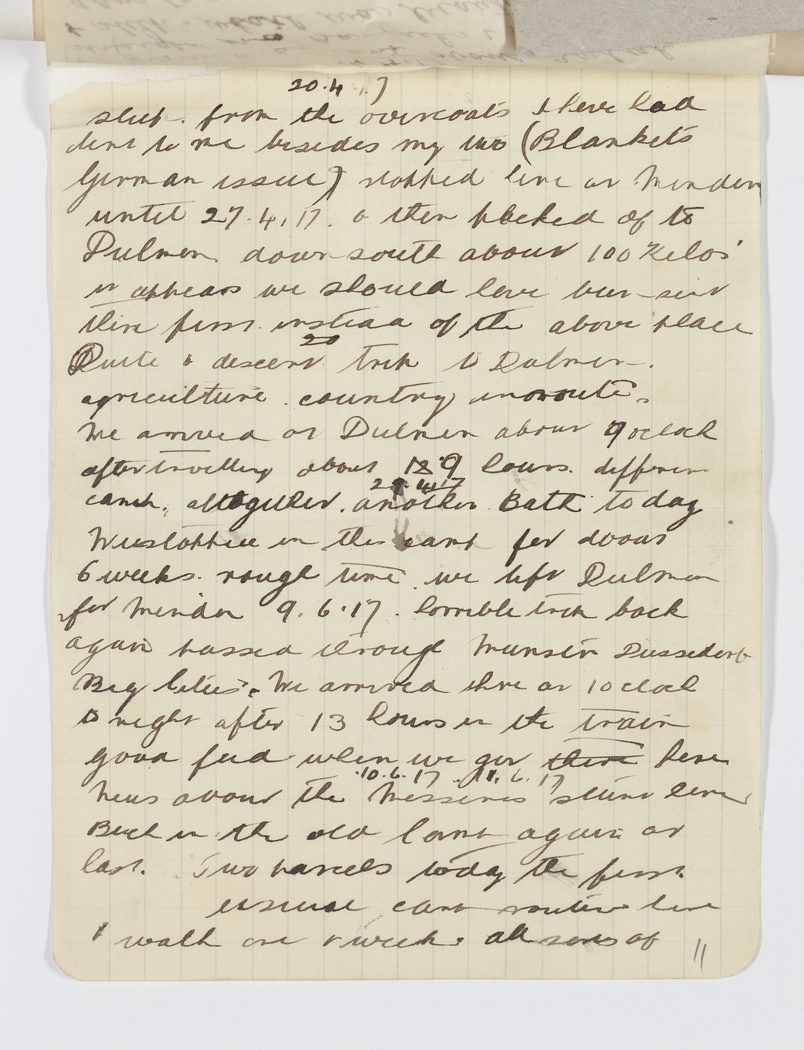 20.4.17
sleep. from the overcoats I have had
lent to me besides my two (Blankets
German issue) stopped here at Minden
until 27.4.17. & then packed of to
Dulmen. down south about 100 Kilos
it appears we should have been sent
there first instead of the above place
Quite a descent trip to Dulmen.
agriculture. country enroute.
We arrived at Dulmen about 9 oclock
after travelling about 9 hours. different
29.4.17
camp. altogether. another Bath today
We stopped in the camp for about
6 weeks. rough time. we left Dulmen
for Minden 9.6.17. horrible trip back
again passed through Munster Dussedorf
Big Cities. We arrived there at 1 oclock
at night after 13 hours in the train
good feed when we got there here
10.6.17. 11.6.17
News about the Messines stunt here
Back in the old Camp again at
last. Two parcels today the first
usual camp routine here
1 walk one a week. all sorts of
11